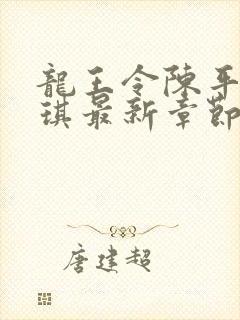 龍王令陳平
琪最新章節
唐建超